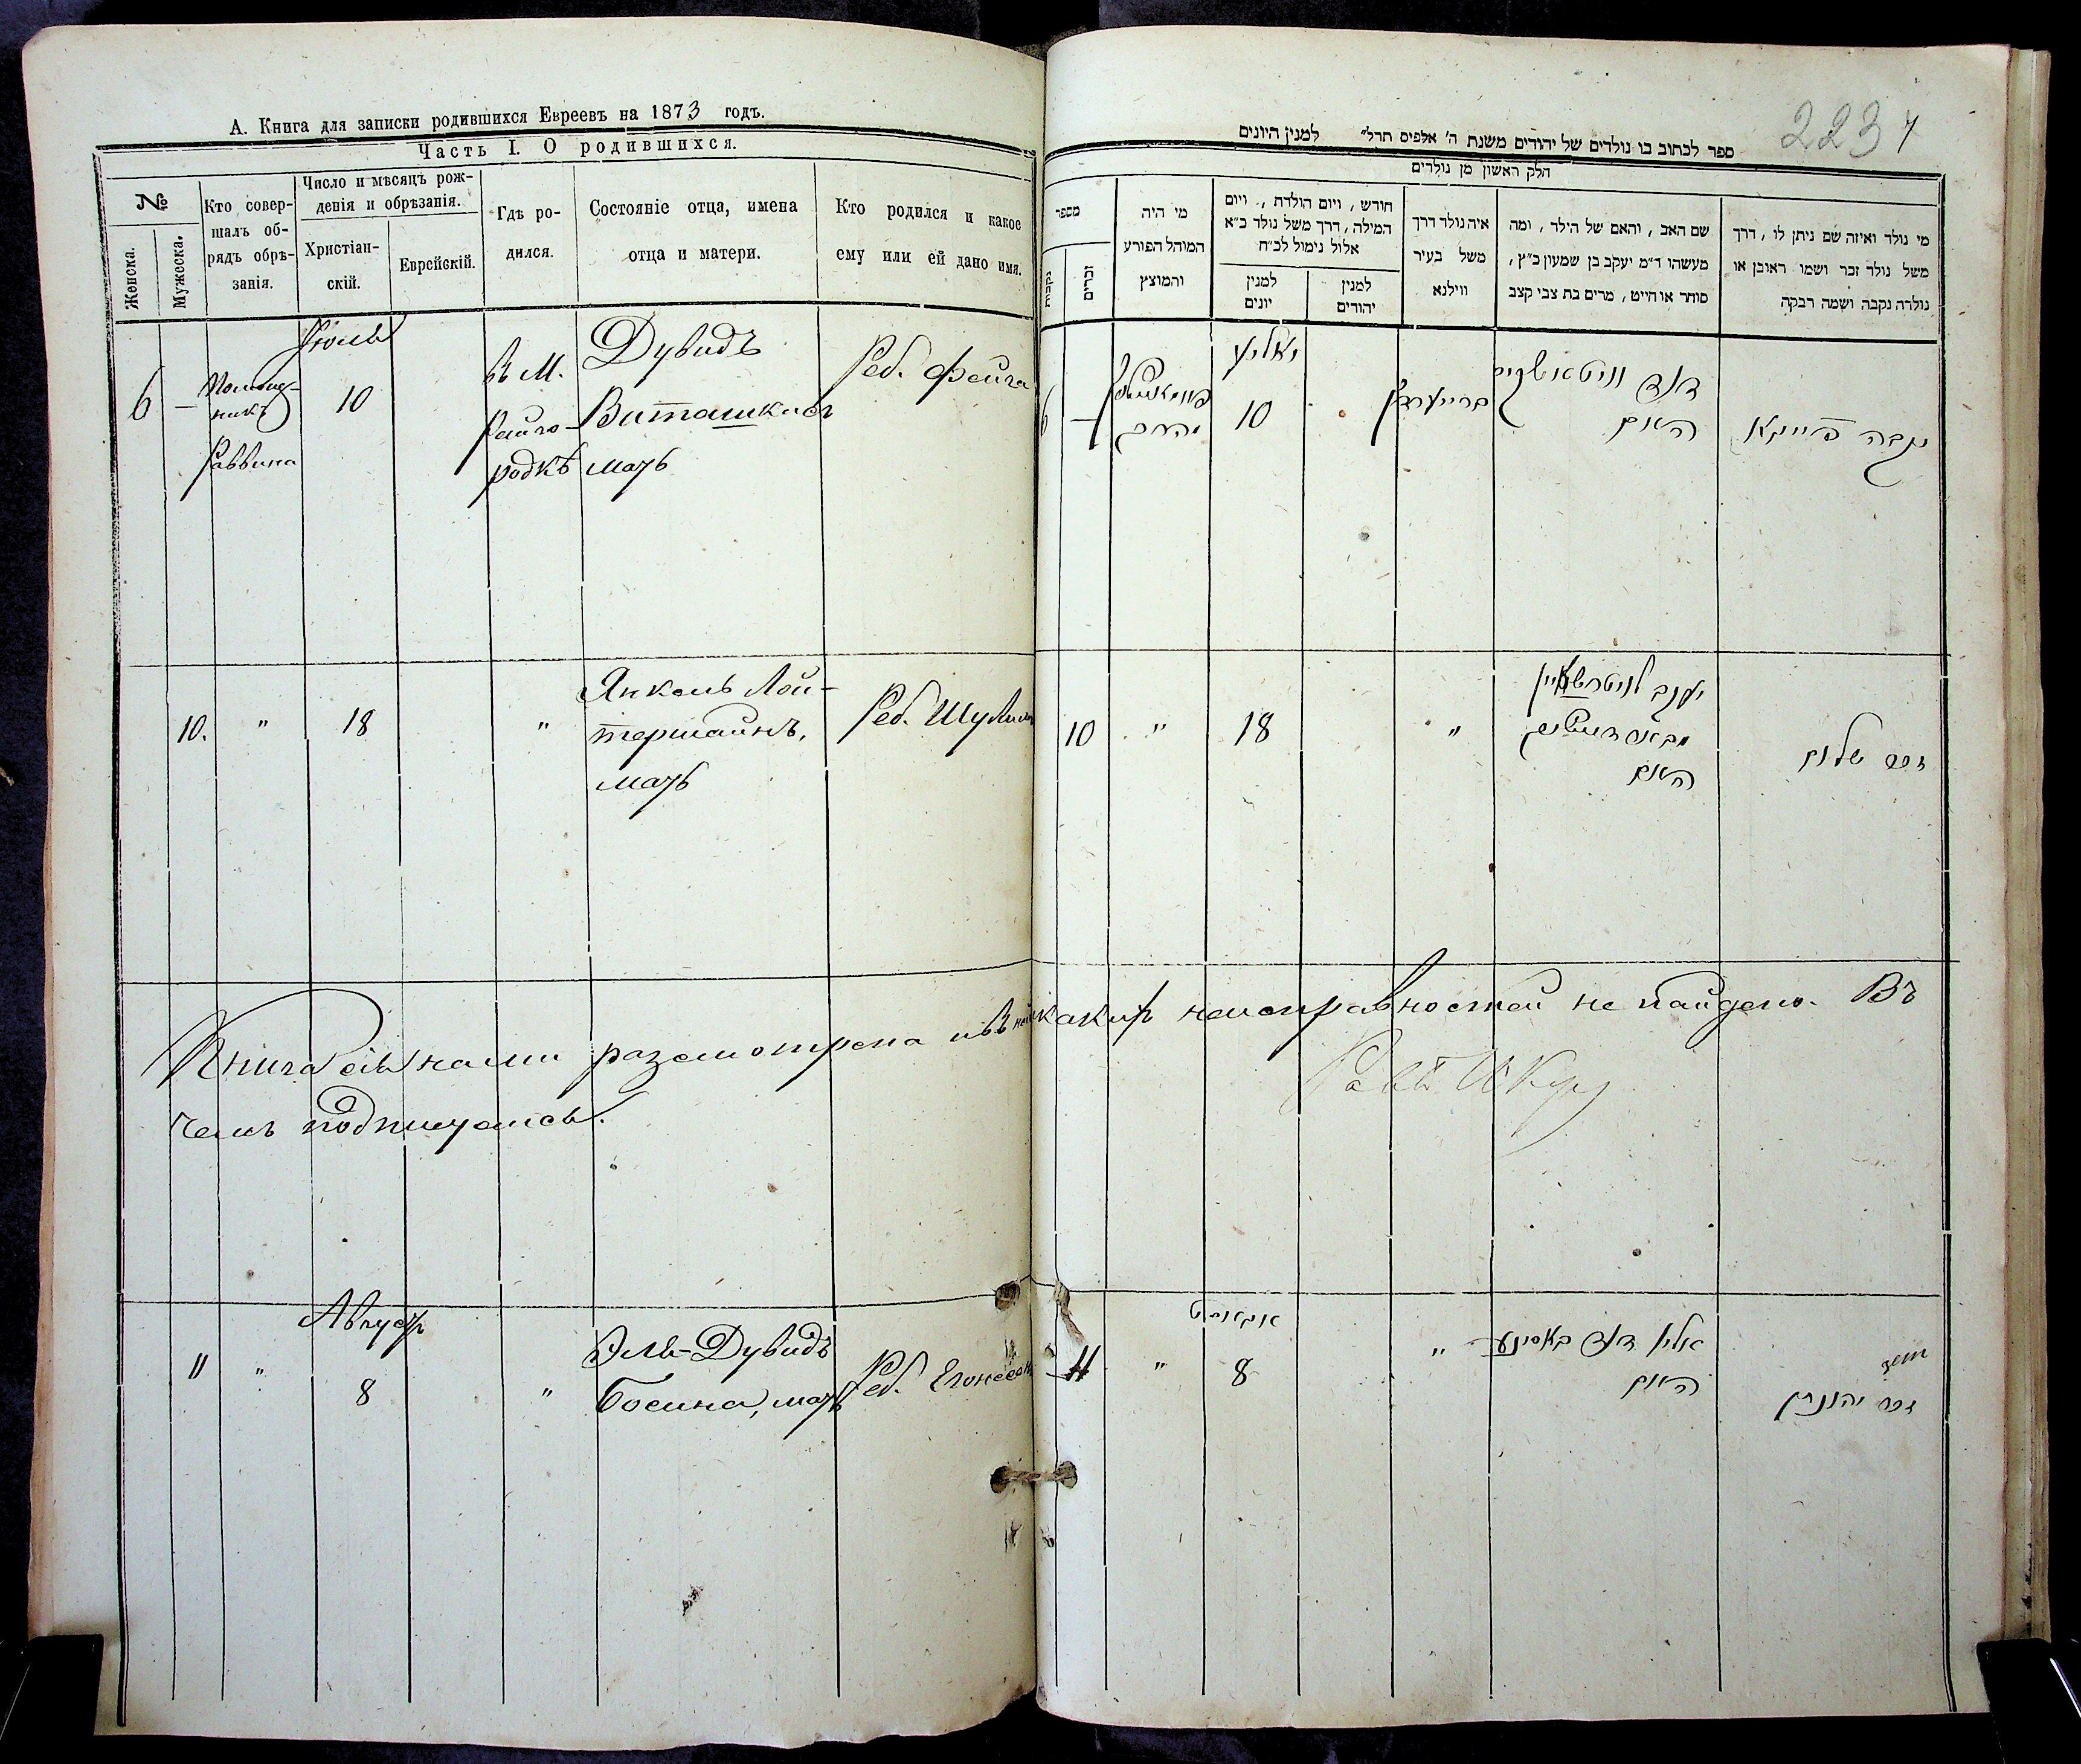 А. Книга для записки родившихся Евреевъ на 1873 годъ.
Часть I. О родившихся.
№
Женска.
Мужеска.
Кто совер-
шалъ об-
рядъ обрѣ-
занія.
Число и мѣсяцъ рож-
денія и обрѣзанія.
Христіан-
скій.
Еврейскій.
Гдѣ ро-
дился.
Состояніе отца, имена
отца и матери.
Кто родился и какое
ему или ей дано имя.
6
—
Помощ-
никъ
Раввина
Іюль
10
въ М.
Райго-
родкѣ
Дувидъ
Виташкинъ
мать
Реб. Фейга
10.
"
18
"
Янкель Лой-
терштайнъ,
мать
Реб. Шулимъ
Книга сія нами разсмотрена и въ ней никакихъ неисправностей не найдено. Въ
чемъ подпишемся.
11
"
Август
8
"
Эль-Дувидъ
Босина, мать
Реб.
223
4
ספר לכתוב בו נולדים של יהודים משנת ה' אלפים תרל" למנין היונים
חלק ראשון מן נולדים
מספר
נקבות
זכרים
מי היה
המוהל הפורע
והמוצץ
חודש, ויום הולדת, ויום
המילה, דרך משל נולד כ"א
אלול נימול לכ"ח
למנין
יונים
למנין
יהודים
איה נולד דרך
משל בעיר
ווילנא
שם האב, והאם של הילד, ומה
מעשהו ד"מ יעקב בן שמעון כ"ץ,
סוחר או חייט, מרים בת צבי קצב
מי נולד ואיזה שם ניתן לו, דרך
משל נולד זכר ושמו ראובן או
נולדה נקבה ושמה רבקה
6
—
יוליע
10
דוד וויטאשקין
האם
נקבה פייגא
10
"
18
"
יעקב לויטרשטיין
האם
זכר שלום
11
"
אבגוסט
8
"
אליו דוד באסינע
האם
זכר יהונתן